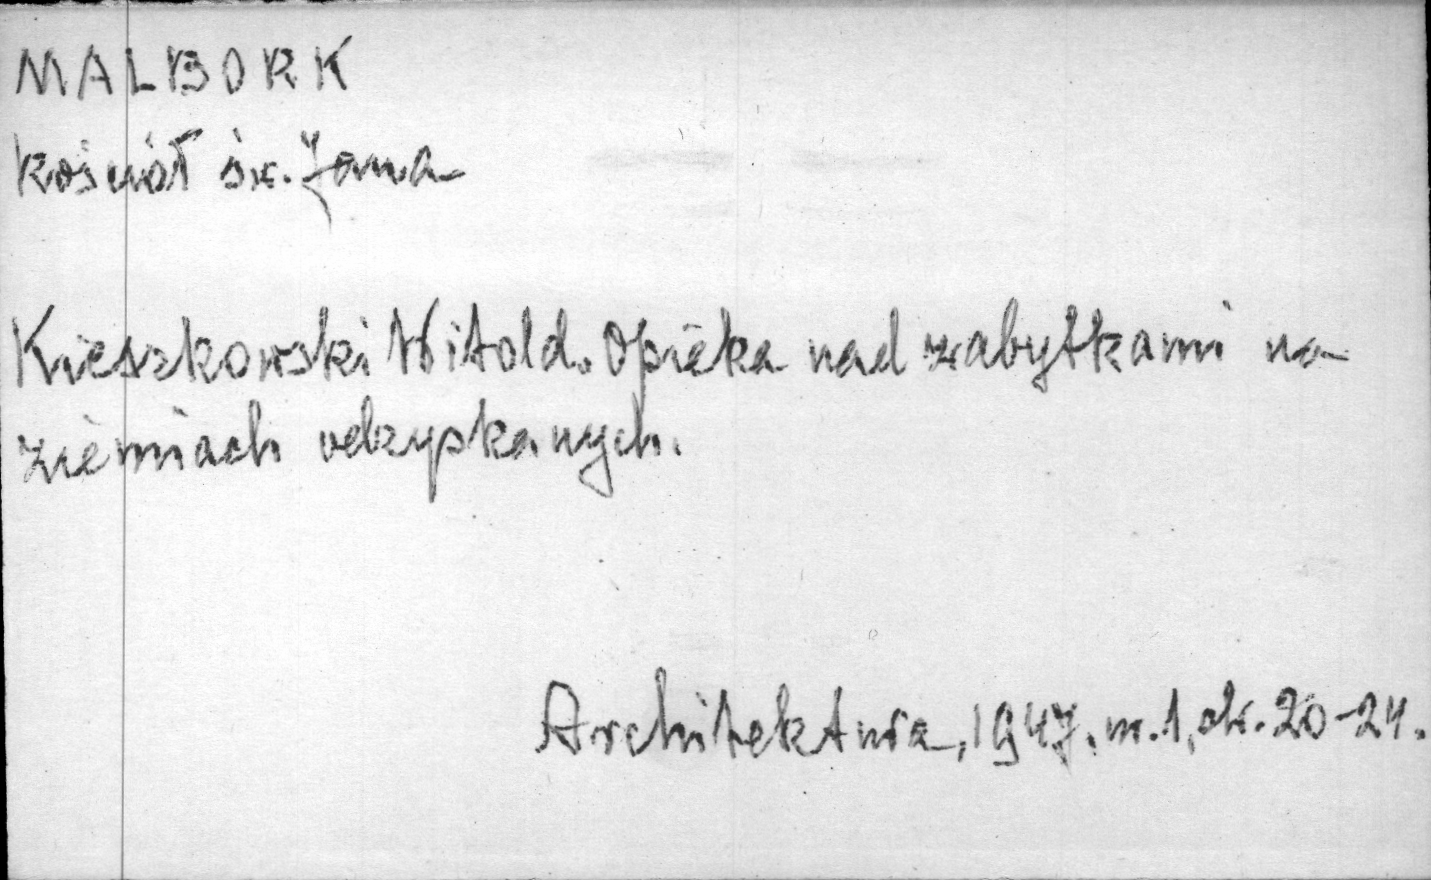 MALBORK
kościół św. Jana
Kieszkowski Witold. Opieka nad zabytkami na
ziemiach odzyskanych.
Architektura, 1947, nr. 1, str. 20-24.